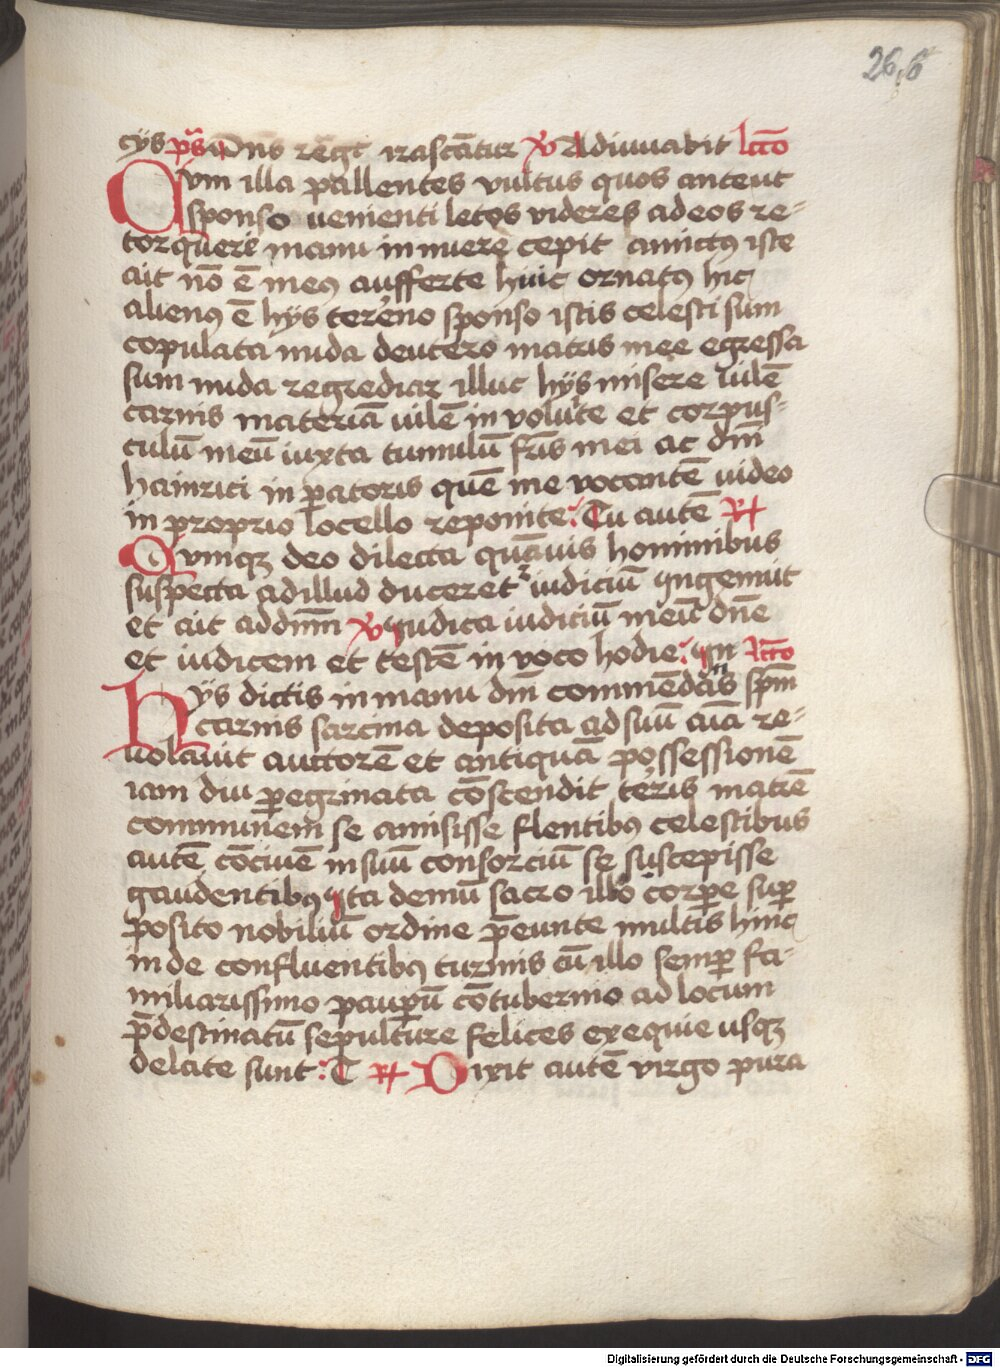 266
cÿs ps Dns regt irascātur ℣ Adiuuabit lcтo
Cvm illa pallentes vultus quos anteut
sponso uenienti letos videres ad eos re-
torquere manu innuere cepit amictꝰ iste
ait nō ē meꝰ aufferte huic ornatꝰ hic
alienꝰ ē hÿs terēno sponso istis celesti sum
copulata nuda de utero matris mee egressa
sum nuda regrediar illuc hÿs misere vilē
carnis materiā uilē in volute et corpus-
culū meū iuxta tumulū fr̄is mei ac dn̄i
hainrici in ꝑatoris quē me vocantē uideo
in proprio locello reponite: Tu autē ℟
Cvmqꝫ deo dilecta quāuis hominibus
suspecta ad illud duceret² iudiciū ingemuit
et ait ad dn̄m ℣ iudica iudiciū meū dn̄e
et iudicem et testē in voco hodie: in lcтo
Hÿs dictis in manu dn̄i commēdās sp̄m
carnis sarcina deposita ad suū aīa re-
uolauit auctorē et antiquā possessionē
iam diu ꝑegrinata cōscendit teris matrē
communem se amisisse flentibꝰ celestibus
autē cōciuē in suū consorciū se suscepisse
gaudentibꝰ ita demū sacro illo corꝑe suꝑ
posito nobiliū ordine p̄eunte multis hinc
inde confluentibꝰ turmis cū illo semꝑ fa-
miliarissimo pauꝑū cōtubernio ad locum
p̄destinatū sepulture felices exequie usqꝫ
delate sunt: T ℟ Dixit autē virgo pura
Digitalisierung gefördert durch die Deutsche Forschungsgemeinschaft - DFG